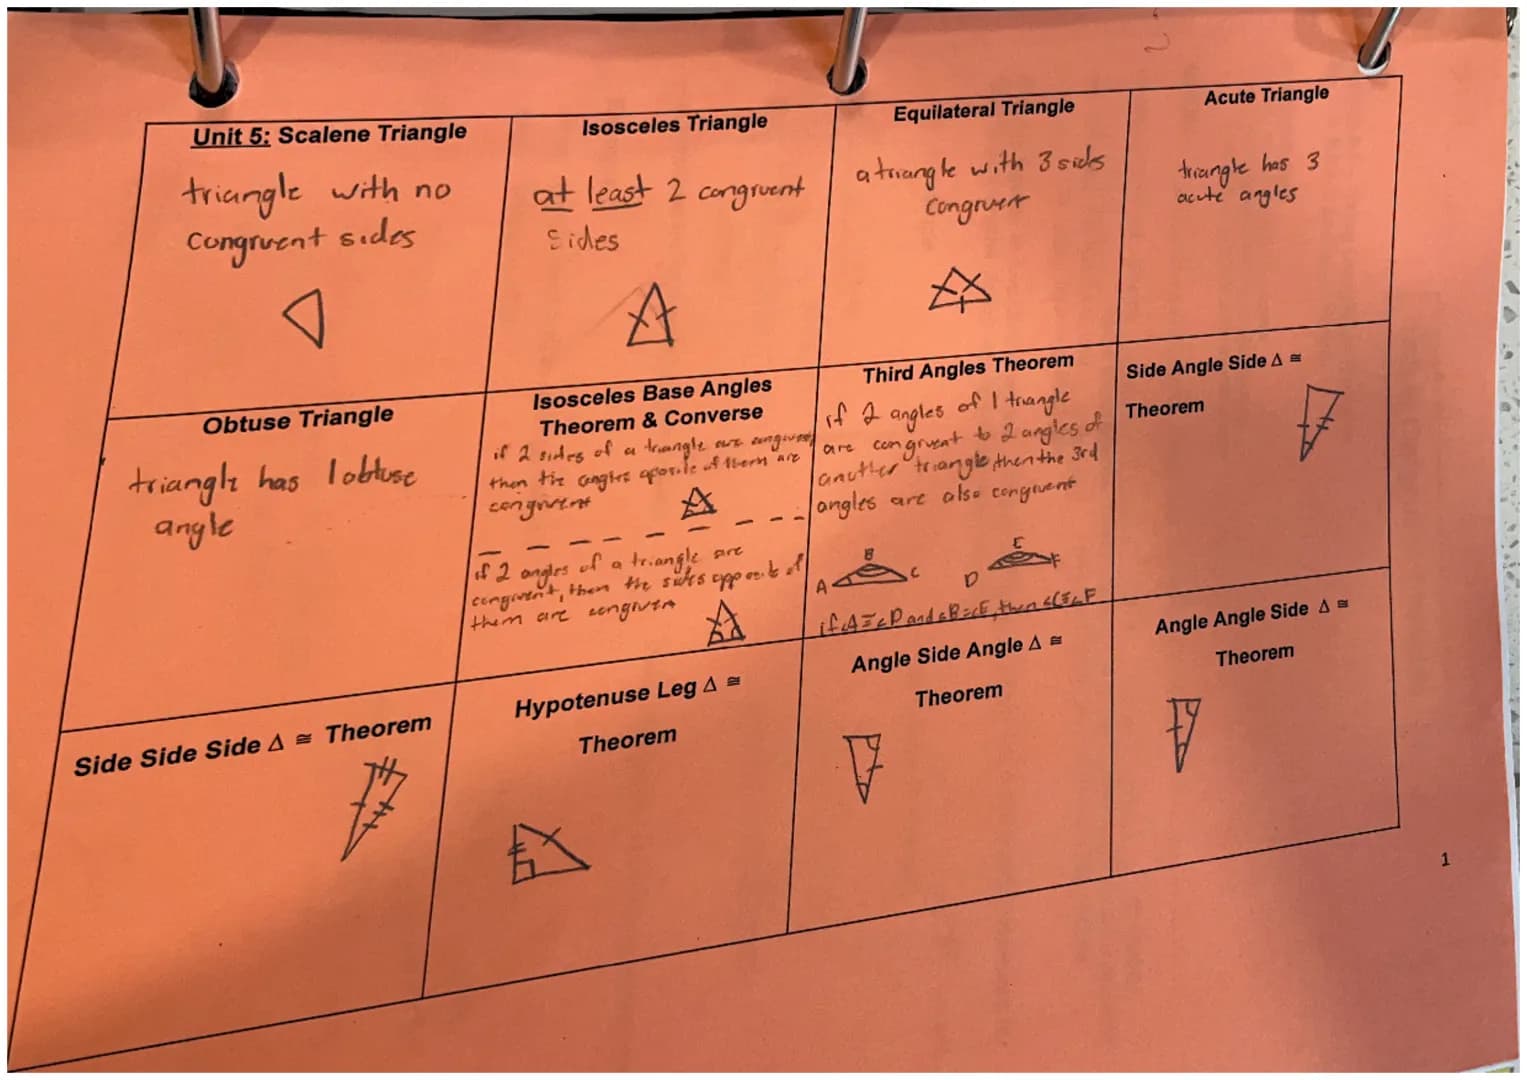 Unit 5: Scalene Triangle
triangle with no
congruent sides
Isosceles Triangle
at least 2 congruent
sides
Equilateral Triangle
a triangle with 3 sides
congruent
Acute Triangle
triangle has 3
acute angles
Obtuse Triangle
triangle has 1 obtuse
angle
Isosceles Base Angles
Theorem & Converse
if 2 sides of a triangle are congruent
then the angles oposite of them are
congruent
if 2 angles of a triangle are
congruent, then the sides opposite of
them are congruent
Third Angles Theorem
if 2 angles of 1 triangle
are congruent to 2 angles of
another triangle, then the 3rd
angles are also congruent
A B C
D E F
if ∠A ≅ ∠D and ∠B ≅ ∠E, then ∠C ≅ ∠F
Side Angle Side Δ ≅
Theorem
Side Side Side Δ ≅ Theorem
Hypotenuse Leg Δ ≅
Theorem
Angle Side Angle Δ ≅
Theorem
Angle Angle Side Δ ≅
Theorem
1